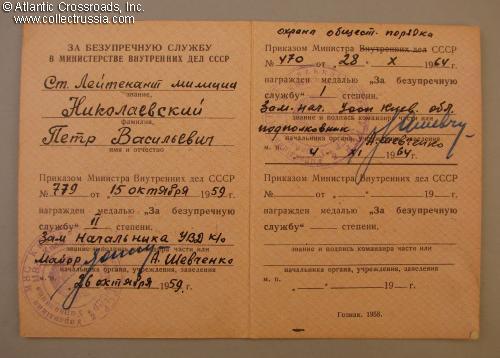 © Atlantic Crossroads, Inc.
www.collectrussia.com
ЗА БЕЗУПРЕЧНУЮ СЛУЖБУ
В МИНИСТЕРСТВЕ ВНУТРЕННИХ ДЕЛ СССР
Ст. Лейтенант милиции
звание,
Николаевский
фамилия,
Петр Васильевич
имя и отчество
Приказом Министра Внутренних Дел СССР
№ 779 от 15 октября 1959 г.
награжден медалью „За безупречную
службу“ II степени.
Зам Начальника УВД К/о
звание и подпись командира части или
Майор А. Шевченко
начальника органа, учреждения, заведения
26 октября 1959 г.
охрана общест. порядка
Приказом Министра Внутренних дел СССР
№ 470 от 28 X 1964 г.
награжден медалью „За безупречную
службу“ I степени.
Зам. нач. Киев. обл.
звание и подпись командира части или
подполковник Шевченко
начальника органа, учреждения, заведения
м. п. 4 XI 1964 г.
Приказом Министра Внутренних Дел СССР
№ от 19 г.
награжден медалью „За безупречную
службу“ степени.
звание и подпись командира части или
начальника органа, учреждения, заведения
м. п. „ “ 19 г.
Гознак. 1958.